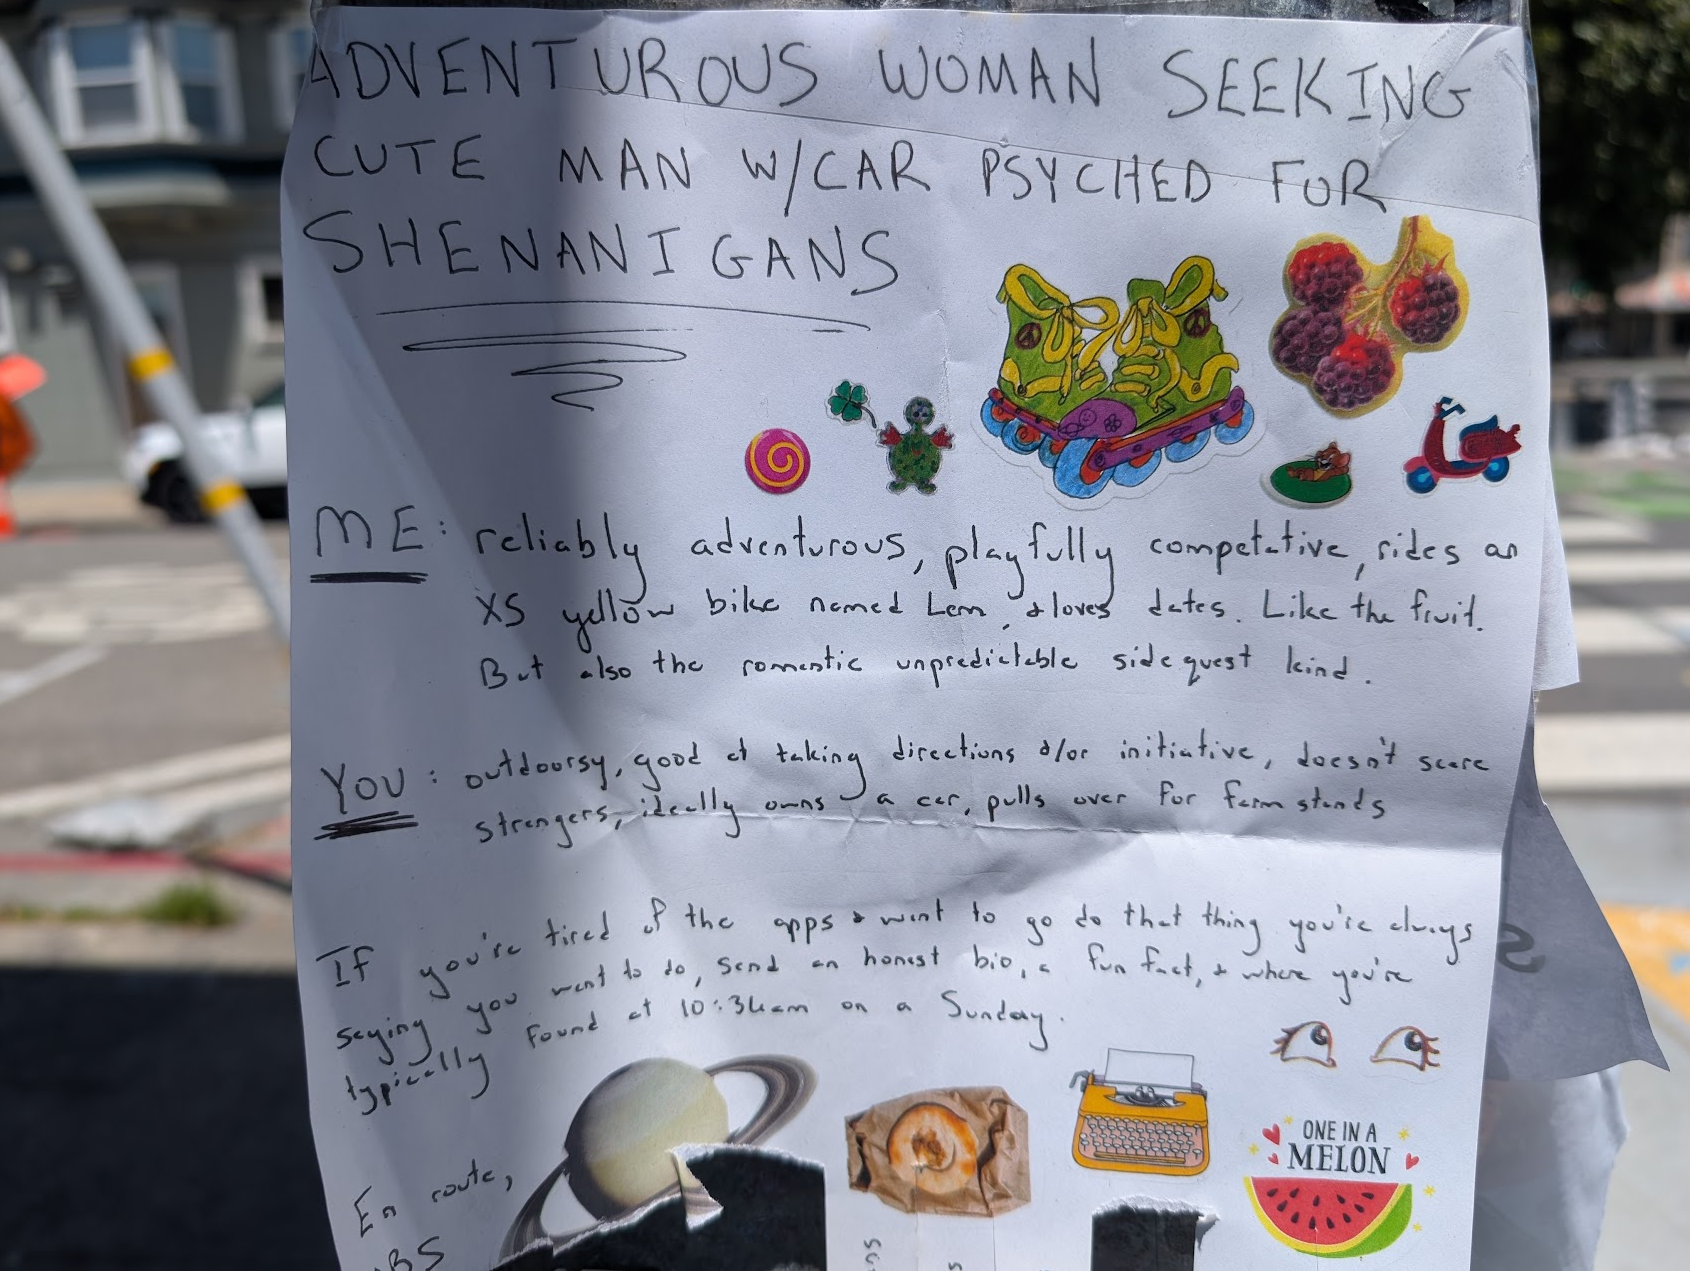 ADVENTUROUS WOMAN SEEKING
CUTE MAN W/CAR PSYCHED FOR
SHENANIGANS
ME: reliably adventurous, playfully competative, rides an
XS yellow bike named Lem, & loves dates. Like the fruit.
But also the romantic unpredictable side quest kind.
YOU: outdoorsy, good at taking directions &/or initiative, doesn't scare
strangers, ideally owns a car, pulls over for farm stands
If you're tired of the apps & want to go do that thing you're always
saying you want to do, send an honest bio, a fun fact, & where you're
typically found at 10:34am on a Sunday.
ONE IN A
MELON
En route,
BS